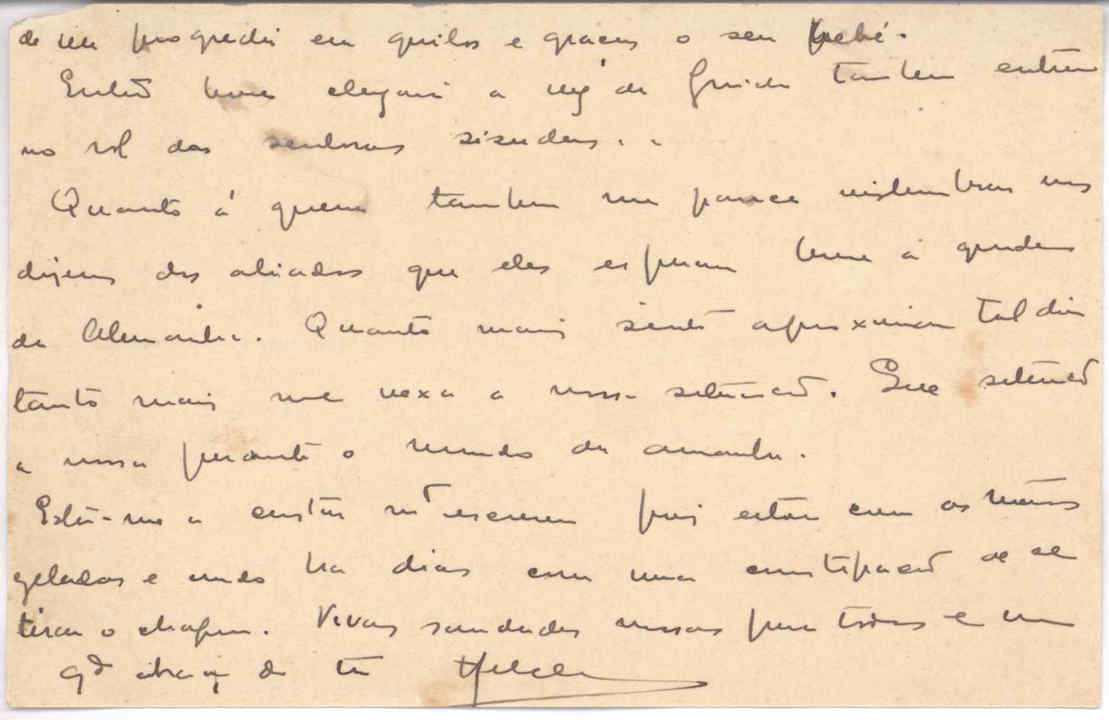 de ver progredir em quilos e graças o seu bebé.
Então a da Guida tambem entrou
no rol das senhoras sisudas..
Quanto á guerra tambem me parece
dizem dos aliados que eles esperam a
da Alemanha. Quanto mais sinto aproximar tal dia
tanto mais me vexa a nossa situação. Que situação
a nossa perante o mundo de amanhã.
Está-me a custar mto escrever pois estou com as mãos
geladas e ando ha dias com uma constipação de se
tirar o chapeu. Vivas saudades nossas para todos e um
gde abraço do teu